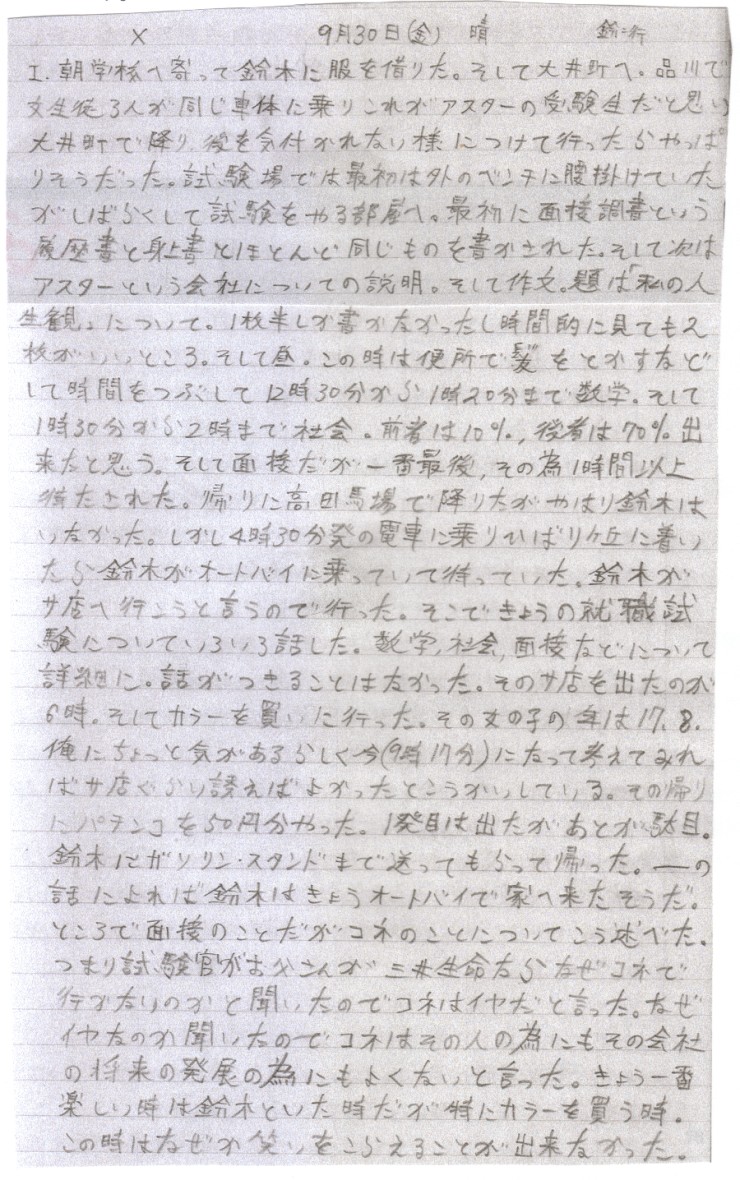 × 9月30日(金) 晴
I. 朝学校へ寄って鈴木に服を借りた。そして大井町へ。品川で
女生徒3人が同じ車体に乗りこれがアスターの受験生だと思い
大井町で降り、後を気付かれない様につけて行ったらやっぱ
りそうだった。試験場では最初は外のベンチに腰掛けていた
がしばらくして試験をやる部屋へ。最初に面接調書という
履歴書と身上書とほとんど同じものを書かされた。そして次は
アスターという会社についての説明。そして作文。題は「私の人
生観」について。1枚半しか書かなかったし時間的に見ても2
枚がいいところ。そして昼。この時は便所で髪をとかすなど
して時間をつぶして12時30分から1時20分まで数学。そして
1時30分から2時まで社会。前者は10%, 後者は70%出
来たと思う。そして面接だが一番最後, その為1時間以上
待たされた。帰りに高田馬場で降りたがやはり鈴木は
いなかった。しかし4時30分発の電車に乗りひばりヶ丘に着い
たら鈴木がオートバイに乗っていて待っていた。鈴木が
サ店へ行こうと言うので行った。そこできょうの就職試
験についていろいろ話した。数学, 社会, 面接などについて
詳細に。話がつきることはなかった。そのサ店を出たのが
6時。そしてカラーを買いに行った。その女の子の年は17, 8.
俺にちょっと気があるらしく今(9時17分)になって考えてみれ
ばサ店ぐらい誘えばよかったとこうかいしている。その帰り
にパチンコを50円分やった。1発目は出たがあとが駄目。
鈴木にガソリン・スタンドまで送ってもらって帰った。―の
話によれば鈴木はきょうオートバイで家へ来たそうだ。
ところで面接のことだがコネのことについてこう述べた。
つまり試験官がお父さんが三井生命ならなぜコネで
行かないのかと聞いたのでコネはイヤだと言った。なぜ
イヤなのか聞いたのでコネはその人の為にもその会社
の将来の発展の為にもよくないと言った。きょう一番
楽しい時は鈴木といた時だが特にカラーを買う時。
この時はなぜか笑いをこらえることが出来なかった。